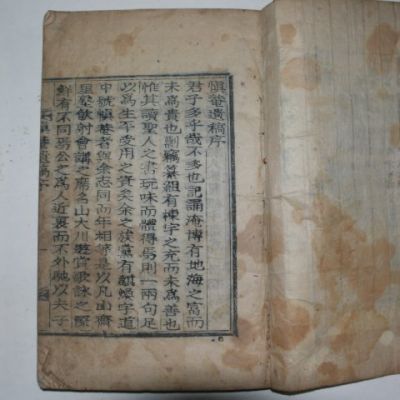 愼菴遺稿序
君子多乎哉不多也記誦淹博有地海之富而
未爲貴也剽竊纂組有棟宇之充而未爲善也
惟其讀聖人之書玩味而體得焉則一兩句足
以爲生平受用之資矣余之族黨有麒煥字道
中號愼菴者與余志同而年相等是以凡山齋
里塾飮射會講之席名山大川遊賞歌詠之際
鮮有不同焉公之爲人近裏而不外馳以夫子